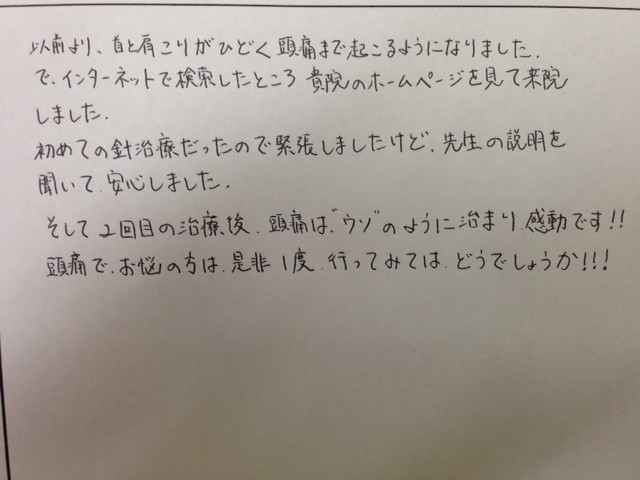 以前より、首と肩こりがひどく頭痛まで起こるようになりました.
で、インターネットで検索したところ 貴院のホームページを見て来院
しました.
初めての針治療だったので緊張しましたけど、先生の説明を
聞いて、安心しました.
そして 2回目の治療後、頭痛は、"ウソ"のように治まり、感動です!!
頭痛で、お悩の方は、是非 1度、行ってみては、どうでしょうか!!!